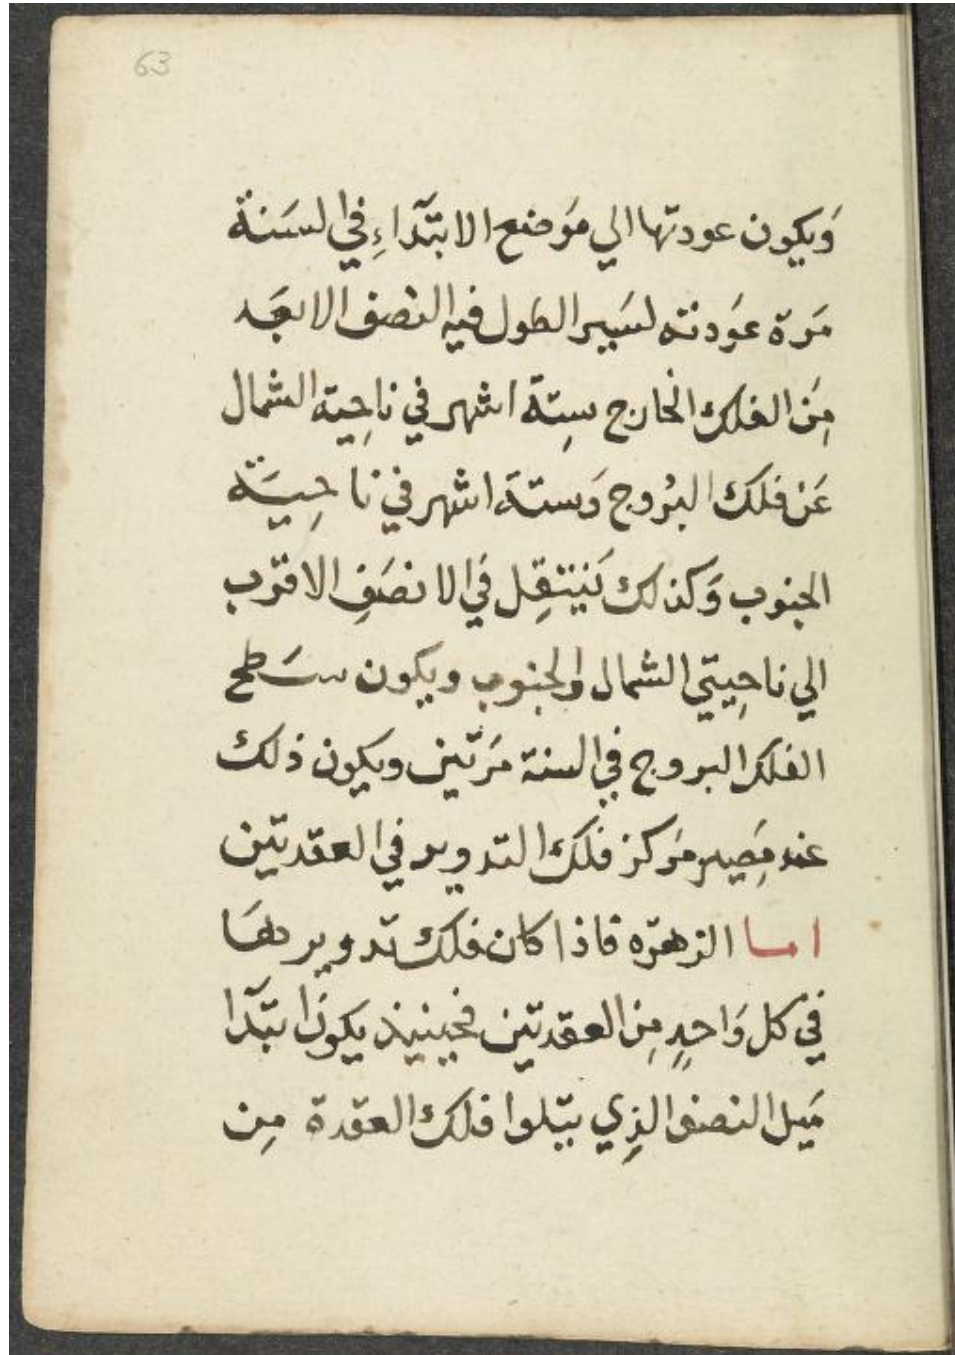 63
وَيكون عودتها الي مَوضع الابتدَاءِ في السَنة
مَرة عوَدته لسَير الطول فيه النصف الابعَد
مِنَ الفلك الخارج سِتة اشهر في ناحِية الشمال
عَن فلك البُروج وَستة اشهر في ناحِيَة
الجنوب وَكذلك يَنتقِل في الانصَفِ الاقرَب
الي ناحِيتي الشمال والجنوب ويكون سَطح
الفلك البروج في السنة مَرتين ويكون ذلك
عند مَصِير مَركز فلك التدوير في العقدتين
اما الزهرَه فاذا كان فلك تدويرهَا
في كل وَاحدٍ مِن العقدتين فحينيذ يكونَ ابتدَا
مَيل النصف الذِي يتلوا فلك العقدة مِن